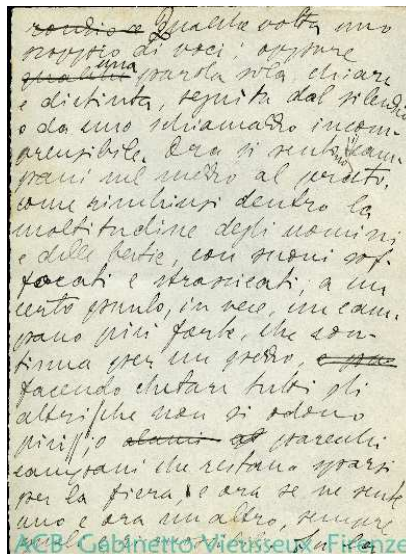 ~~rondio e~~ Qualche volta uno
scoppio di voci; oppure
~~qualche~~ una parola sola, chiara
e distinta, seguita dal silenzio
o da uno schiamazzo incom-
prensibile. Ora si sentono i cam-
pani nel mezzo al prato,
come rinchiusi dentro la
moltitudine degli uomini
e delle bestie, con suoni sof-
focati e strascicati; a un
certo punto, in vece, un cam-
pano più forte, che con-
tinua per un pezzo,
facendo chetare tutti gli
altri, che non si odono
più; o parecchi
campani che restano sparsi
per la fiera, e ora se ne sente
uno e ora un altro, sempre
ACB Gabinetto Vieusseux, Firenze